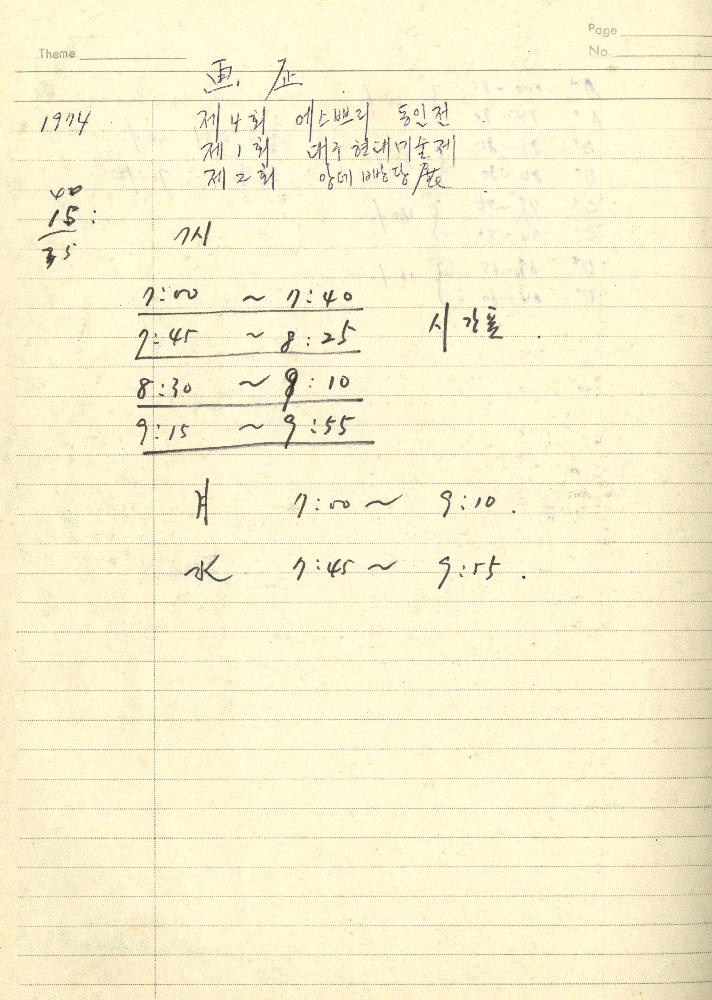 Page
Theme
No.
画 歴
1974 제4회 에스쁘리 동인전
제1회 대구현대미술제
제2회 앙데빵당展
15:
35
7시
7:00 ~ 7:40
7:45 ~ 8:25 시간표.
8:30 ~ 9:10
9:15 ~ 9:55
月 7:00 ~ 9:10.
水 7:45 ~ 9:55.